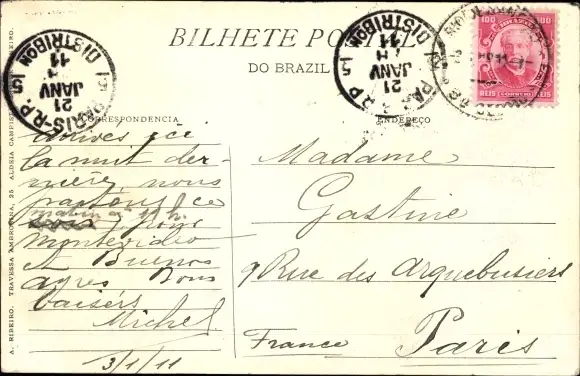 BILHETE POSTAL
DO BRAZIL
CORRESPONDENCIA
ENDEREÇO
Arrivés ici
la nuit der-
nière, nous
partons ce
matin à 11 h.
pour
Montevideo
et Buenos
ayres Bons
baisers
Michel
3/1/11
Madame
Gastine
9 Rue des Arquebusiers
Paris
France
A. RIBEIRO. TRAVESSA AMBROZINA, 25 ALDEIA CAMPISTA
PARIS-R.P.
DISTRIBON
5 21 5
JANV
11
PARIS R.P.
DISTRIBON
5 21
JANV
11
100 BRAZIL 100
REIS CORREIO REIS